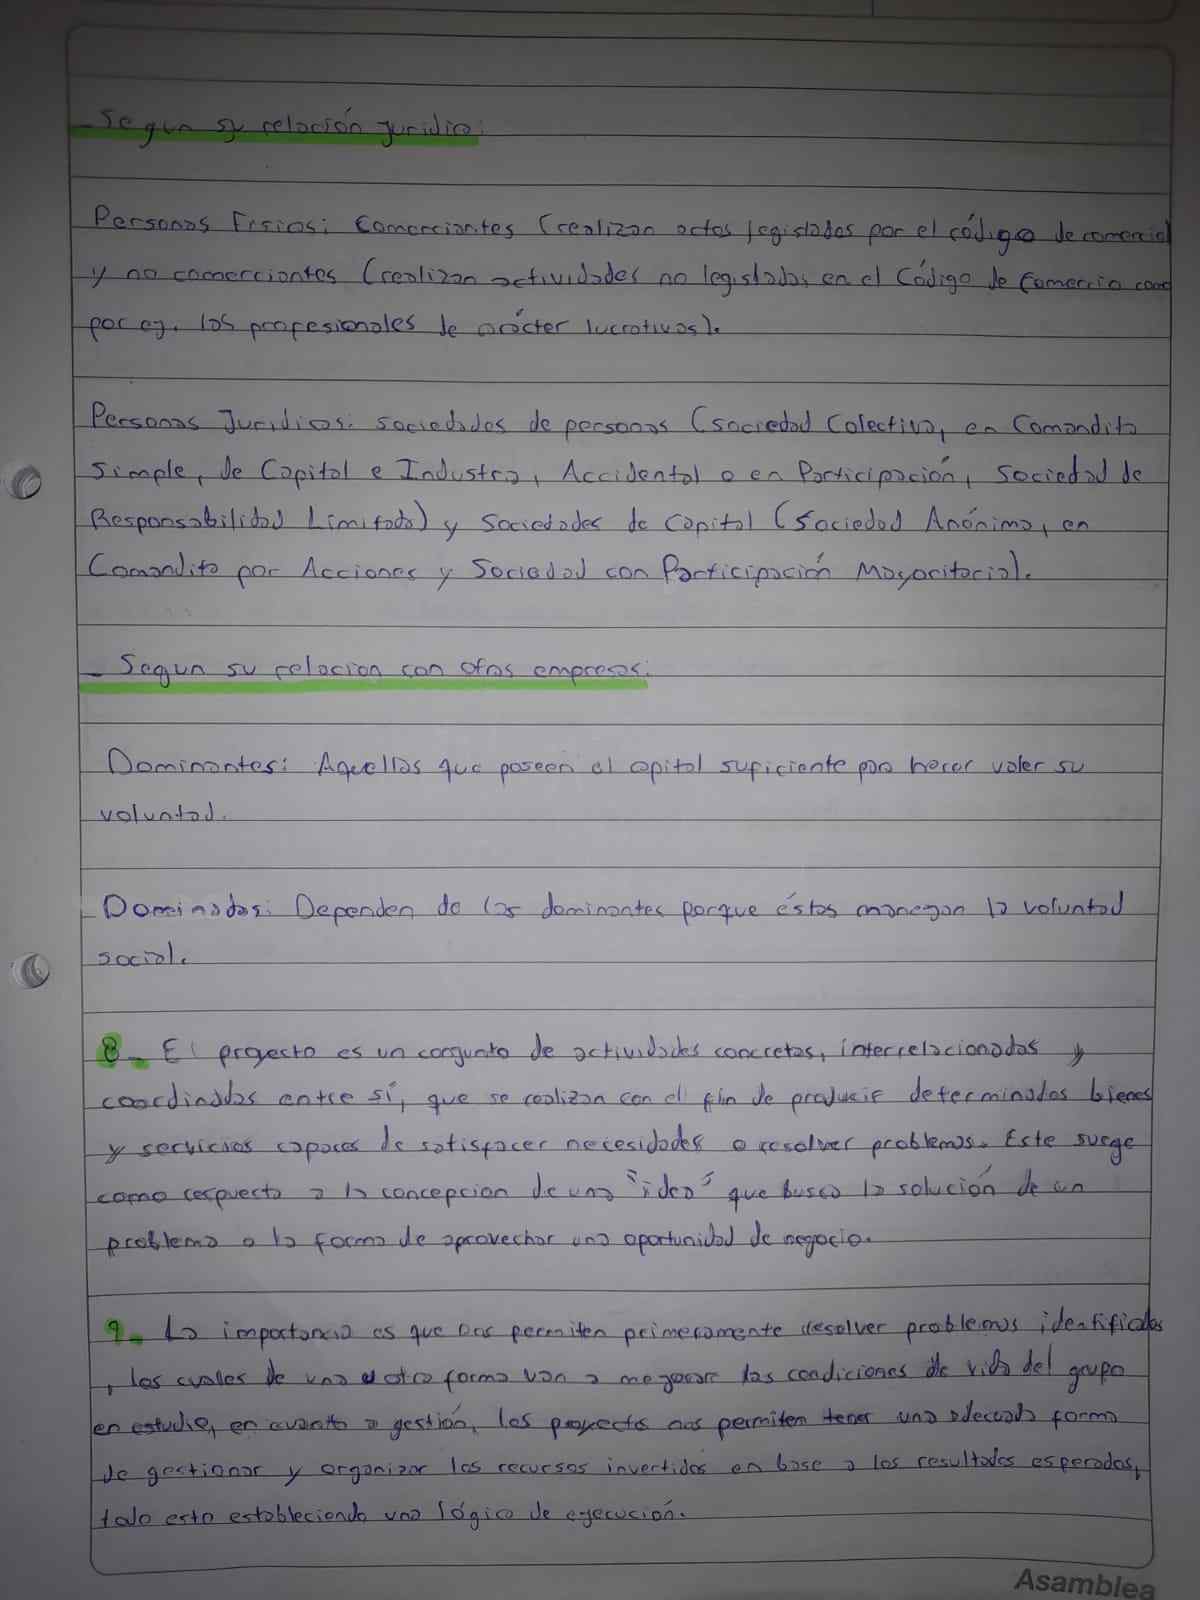 - Segun su relación Juridica:
Personas Fisicas: Comerciantes (realizan actos legislados por el código de comercio
y no comerciantes (realizan actividades no legisladas en el Código de Comercio como
por ej. los profesionales de carácter lucrativos).
Personas Juridicas: sociedades de personas (Sociedad Colectiva, en Comandita
Simple, de Capital e Industria, Accidental o en Participación, Sociedad de
Responsabilidad Limitada) y Sociedades de Capital (Sociedad Anónima, en
Comandita por Acciones y Sociedad con Participación Mayoritaria).
- Segun su relacion con otras empresas:
Dominantes: Aquellas que poseen el capital suficiente para hacer valer su
voluntad.
Dominadas: Dependen de las dominantes porque éstas manejan la voluntad
social.
8- El proyecto es un conjunto de actividades concretas, interrelacionadas y
coordinadas entre sí, que se realizan con el fin de producir determinados bienes
y servicios capaces de satisfacer necesidades o resolver problemas. Este surge
como respuesta a la concepcion de una "idea" que busca la solución de un
problema o la forma de aprovechar una oportunidad de negocio.
9- La importancia es que nos permiten primeramente resolver problemas identificados
, los cuales de una u otra forma van a mejorar las condiciones de vida del grupo
en estudio, en cuanto a gestión, los proyectos nos permiten tener una adecuada forma
de gestionar y organizar los recursos invertidos en base a los resultados esperados,
todo esto estableciendo una lógica de ejecución.
Asamblea